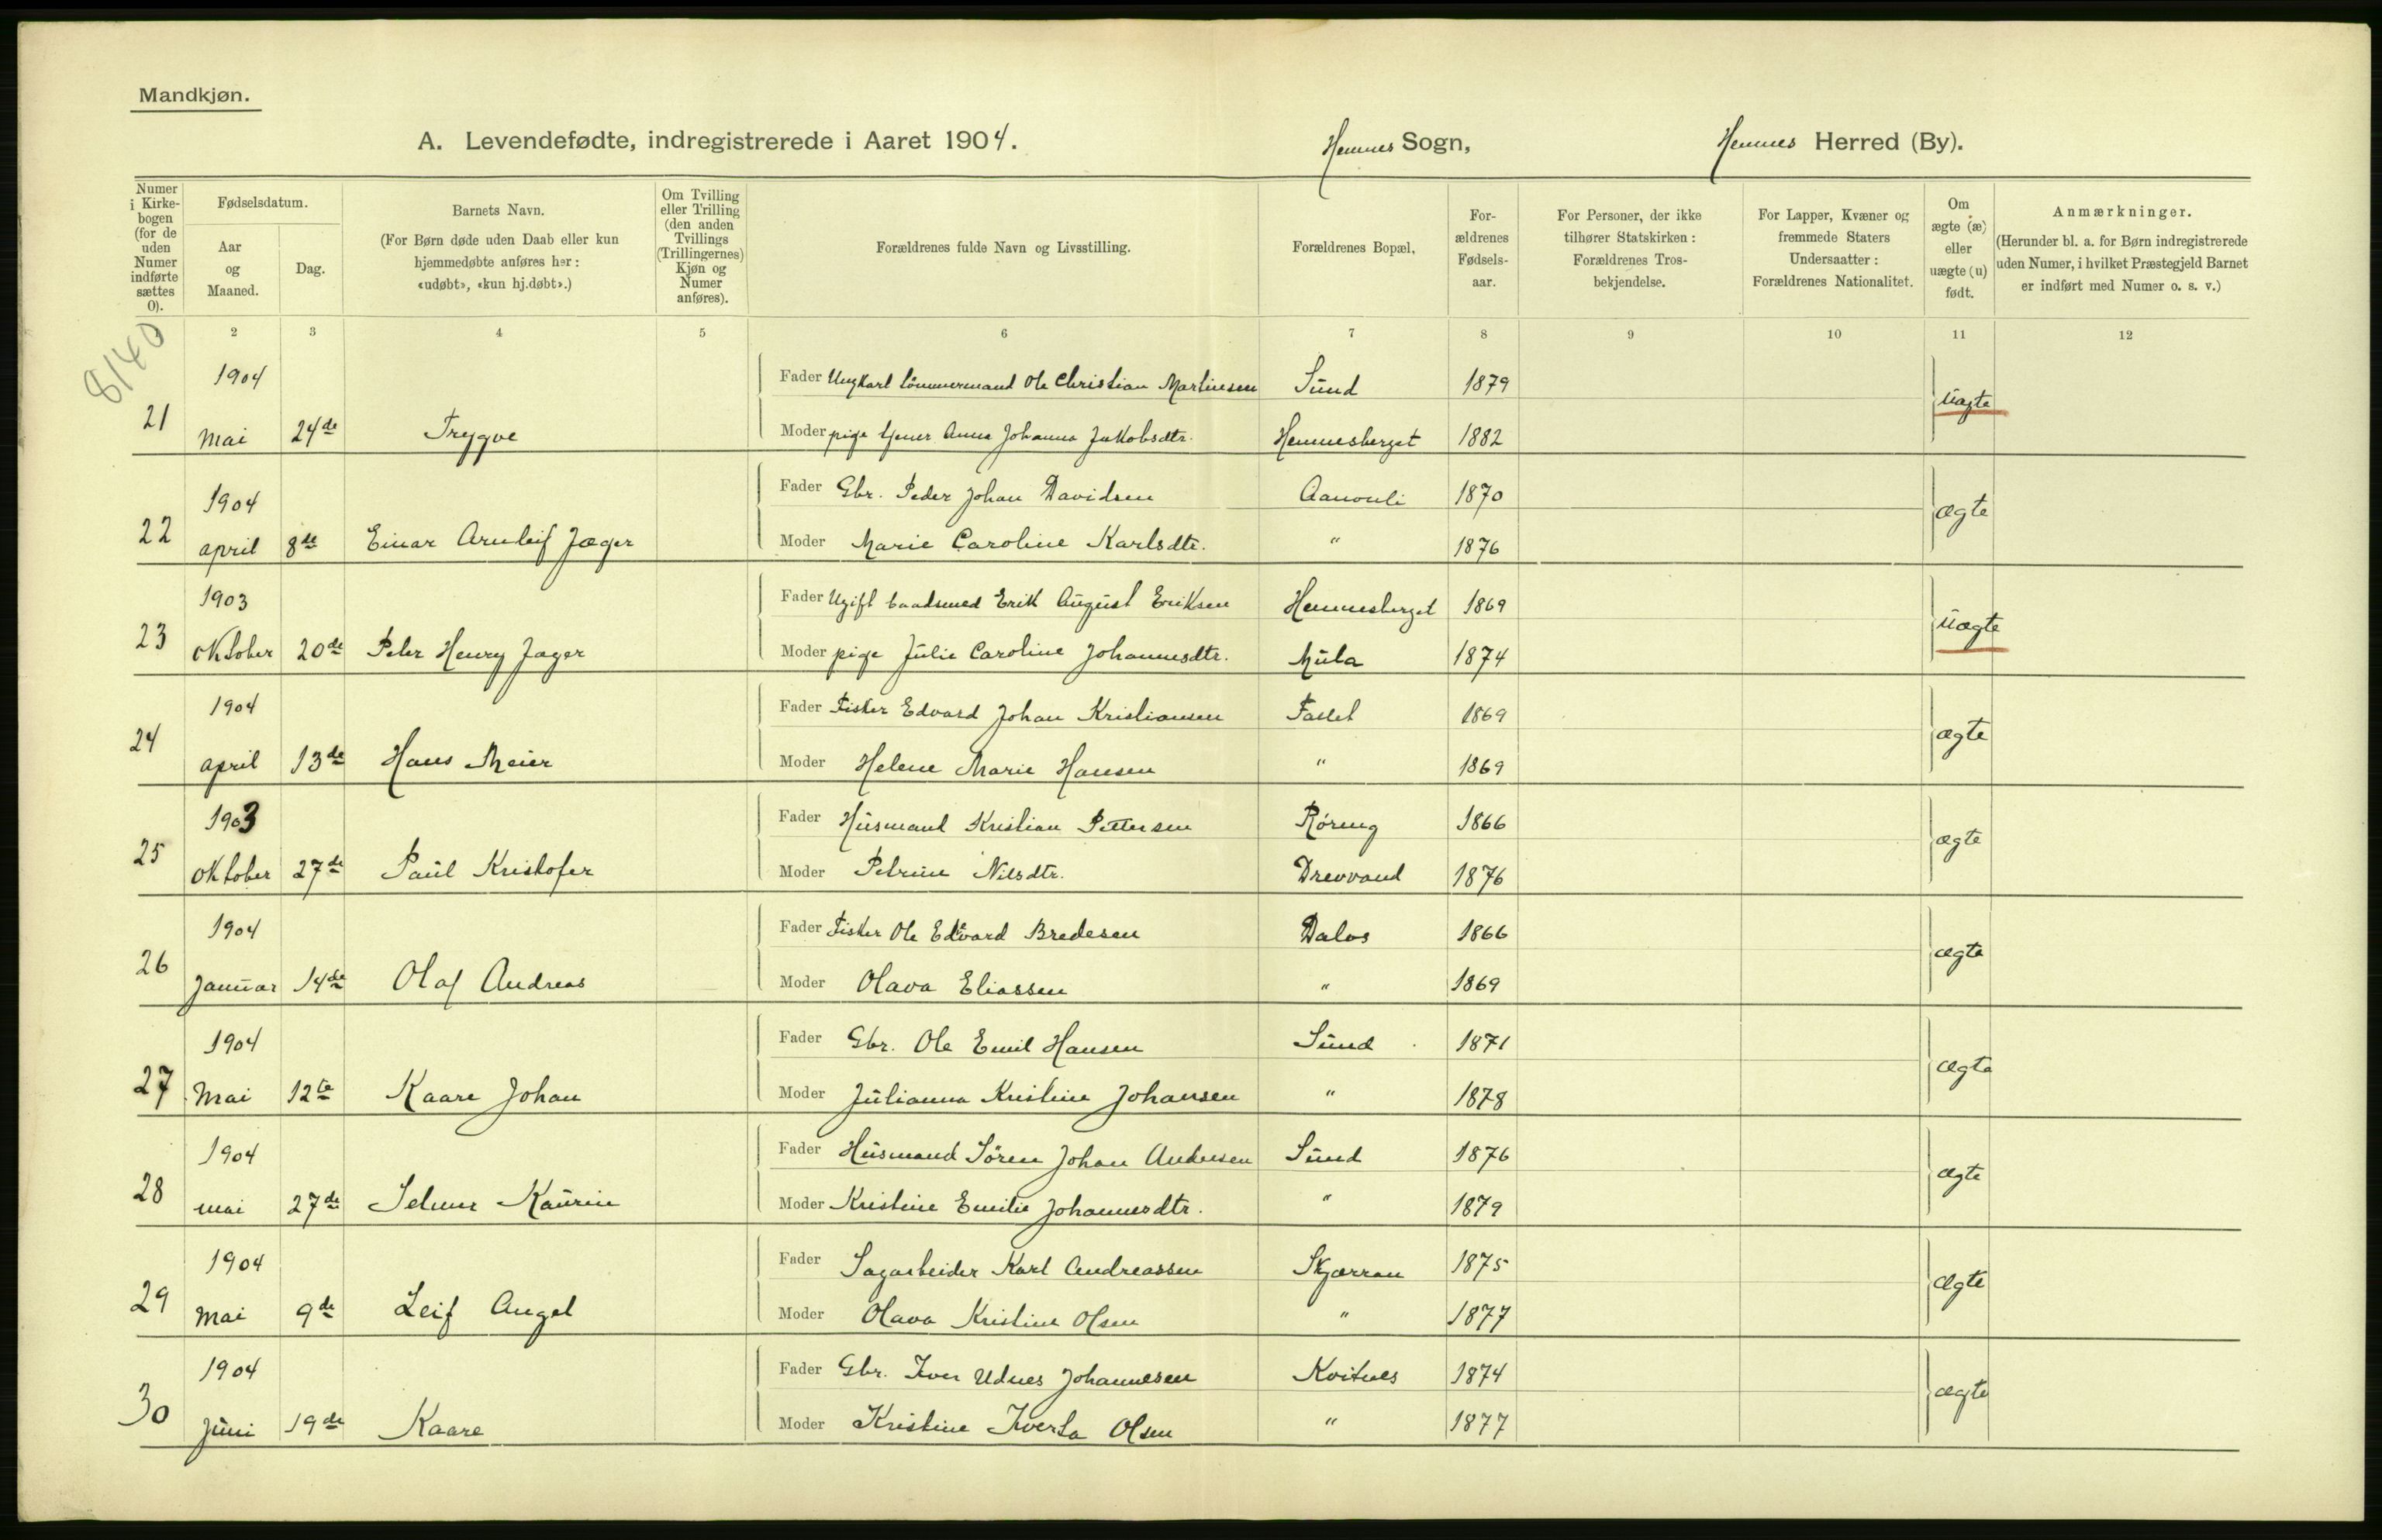 Mandkjøn.
A. Levendefødte, indregistrerede i Aaret 1904. Hemnes Sogn, Hemnes Herred (By).
Numer i Kirke-bogen (for de uden Numer indførte sættes 0).
Fødselsdatum.
Aar og Maaned.
Dag.
Barnets Navn.
(For Børn døde uden Daab eller kun hjemmedøbte anføres her: «udøbt», «kun hj.døbt».)
Om Tvilling eller Trilling (den anden Tvillings (Trillingernes) Kjøn og Numer anføres).
Forældrenes fulde Navn og Livsstilling.
Forældrenes Bopæl.
For-ældrenes Fødsels-aar.
For Personer, der ikke tilhører Statskirken: Forældrenes Tros-bekjendelse.
For Lapper, Kvæner og fremmede Staters Undersaatter: Forældrenes Nationalitet.
Om ægte (æ) eller uægte (u) født.
Anmærkninger.
(Herunder bl. a. for Børn indregistrerede uden Numer, i hvilket Præstegjeld Barnet er indført med Numer o. s. v.)
2 3 4 5 6 7 8 9 10 11 12
8140
1904 Fader Ungkarl tömmermand Ole Christian Martinsen Sund 1879 uægte
21 Mai 24de Trygve Moder pige tjener Anna Johanna Jakobsdtr. Hemnesberget 1882
1904 Fader Gbr. Peder Johan Davidsen 1870 ægte
22 april 8de Einar Arnleif Jæger Moder Marie Caroline Karlsdtr. " 1876
1903 Fader Ugift baadsmed Erik August Eriksen Hemnesberget 1869 uægte
23 oktober 20de Peter Henry Jæger Moder pige Julie Caroline Johannesdtr. Mula 1874
1904 Fader Fisker Edvard Johan Kristiansen 1869 ægte
24 april 13de Hans Meier Moder Helene Marie Hansen " 1869
1903 Fader Husmand Kristian Pettersen Røreng 1866 ægte
25 oktober 27de Paul Kristofer Moder Petrine Nilsdtr. Drevvand 1876
1904 Fader Fisker Ole Edvard Bredesen Dalos 1866 ægte
26 Januar 14de Olaf Andreas Moder Olava Eliassen " 1869
1904 Fader Gbr. Ole Emil Hansen Sund 1871 ægte
27 Mai 12te Kaare Johan Moder Julianna Kristine Johansen " 1878
1904 Fader Husmand Sören Johan Andersen Sund 1876 ægte
28 mai 27de Selmer Kaurin Moder Kristine Emilie Johannesdtr. " 1879
1904 Fader Sagarbeider Karl Andreassen Skjærran 1875 ægte
29 Mai 9de Leif Angel Moder Olava Kristine Olsen " 1877
1904 Fader Gbr. Iver Udnes Johannesen Kvitnes 1874 ægte
30 Juni 19de Kaare Moder Kristine Iverta Olsen " 1877